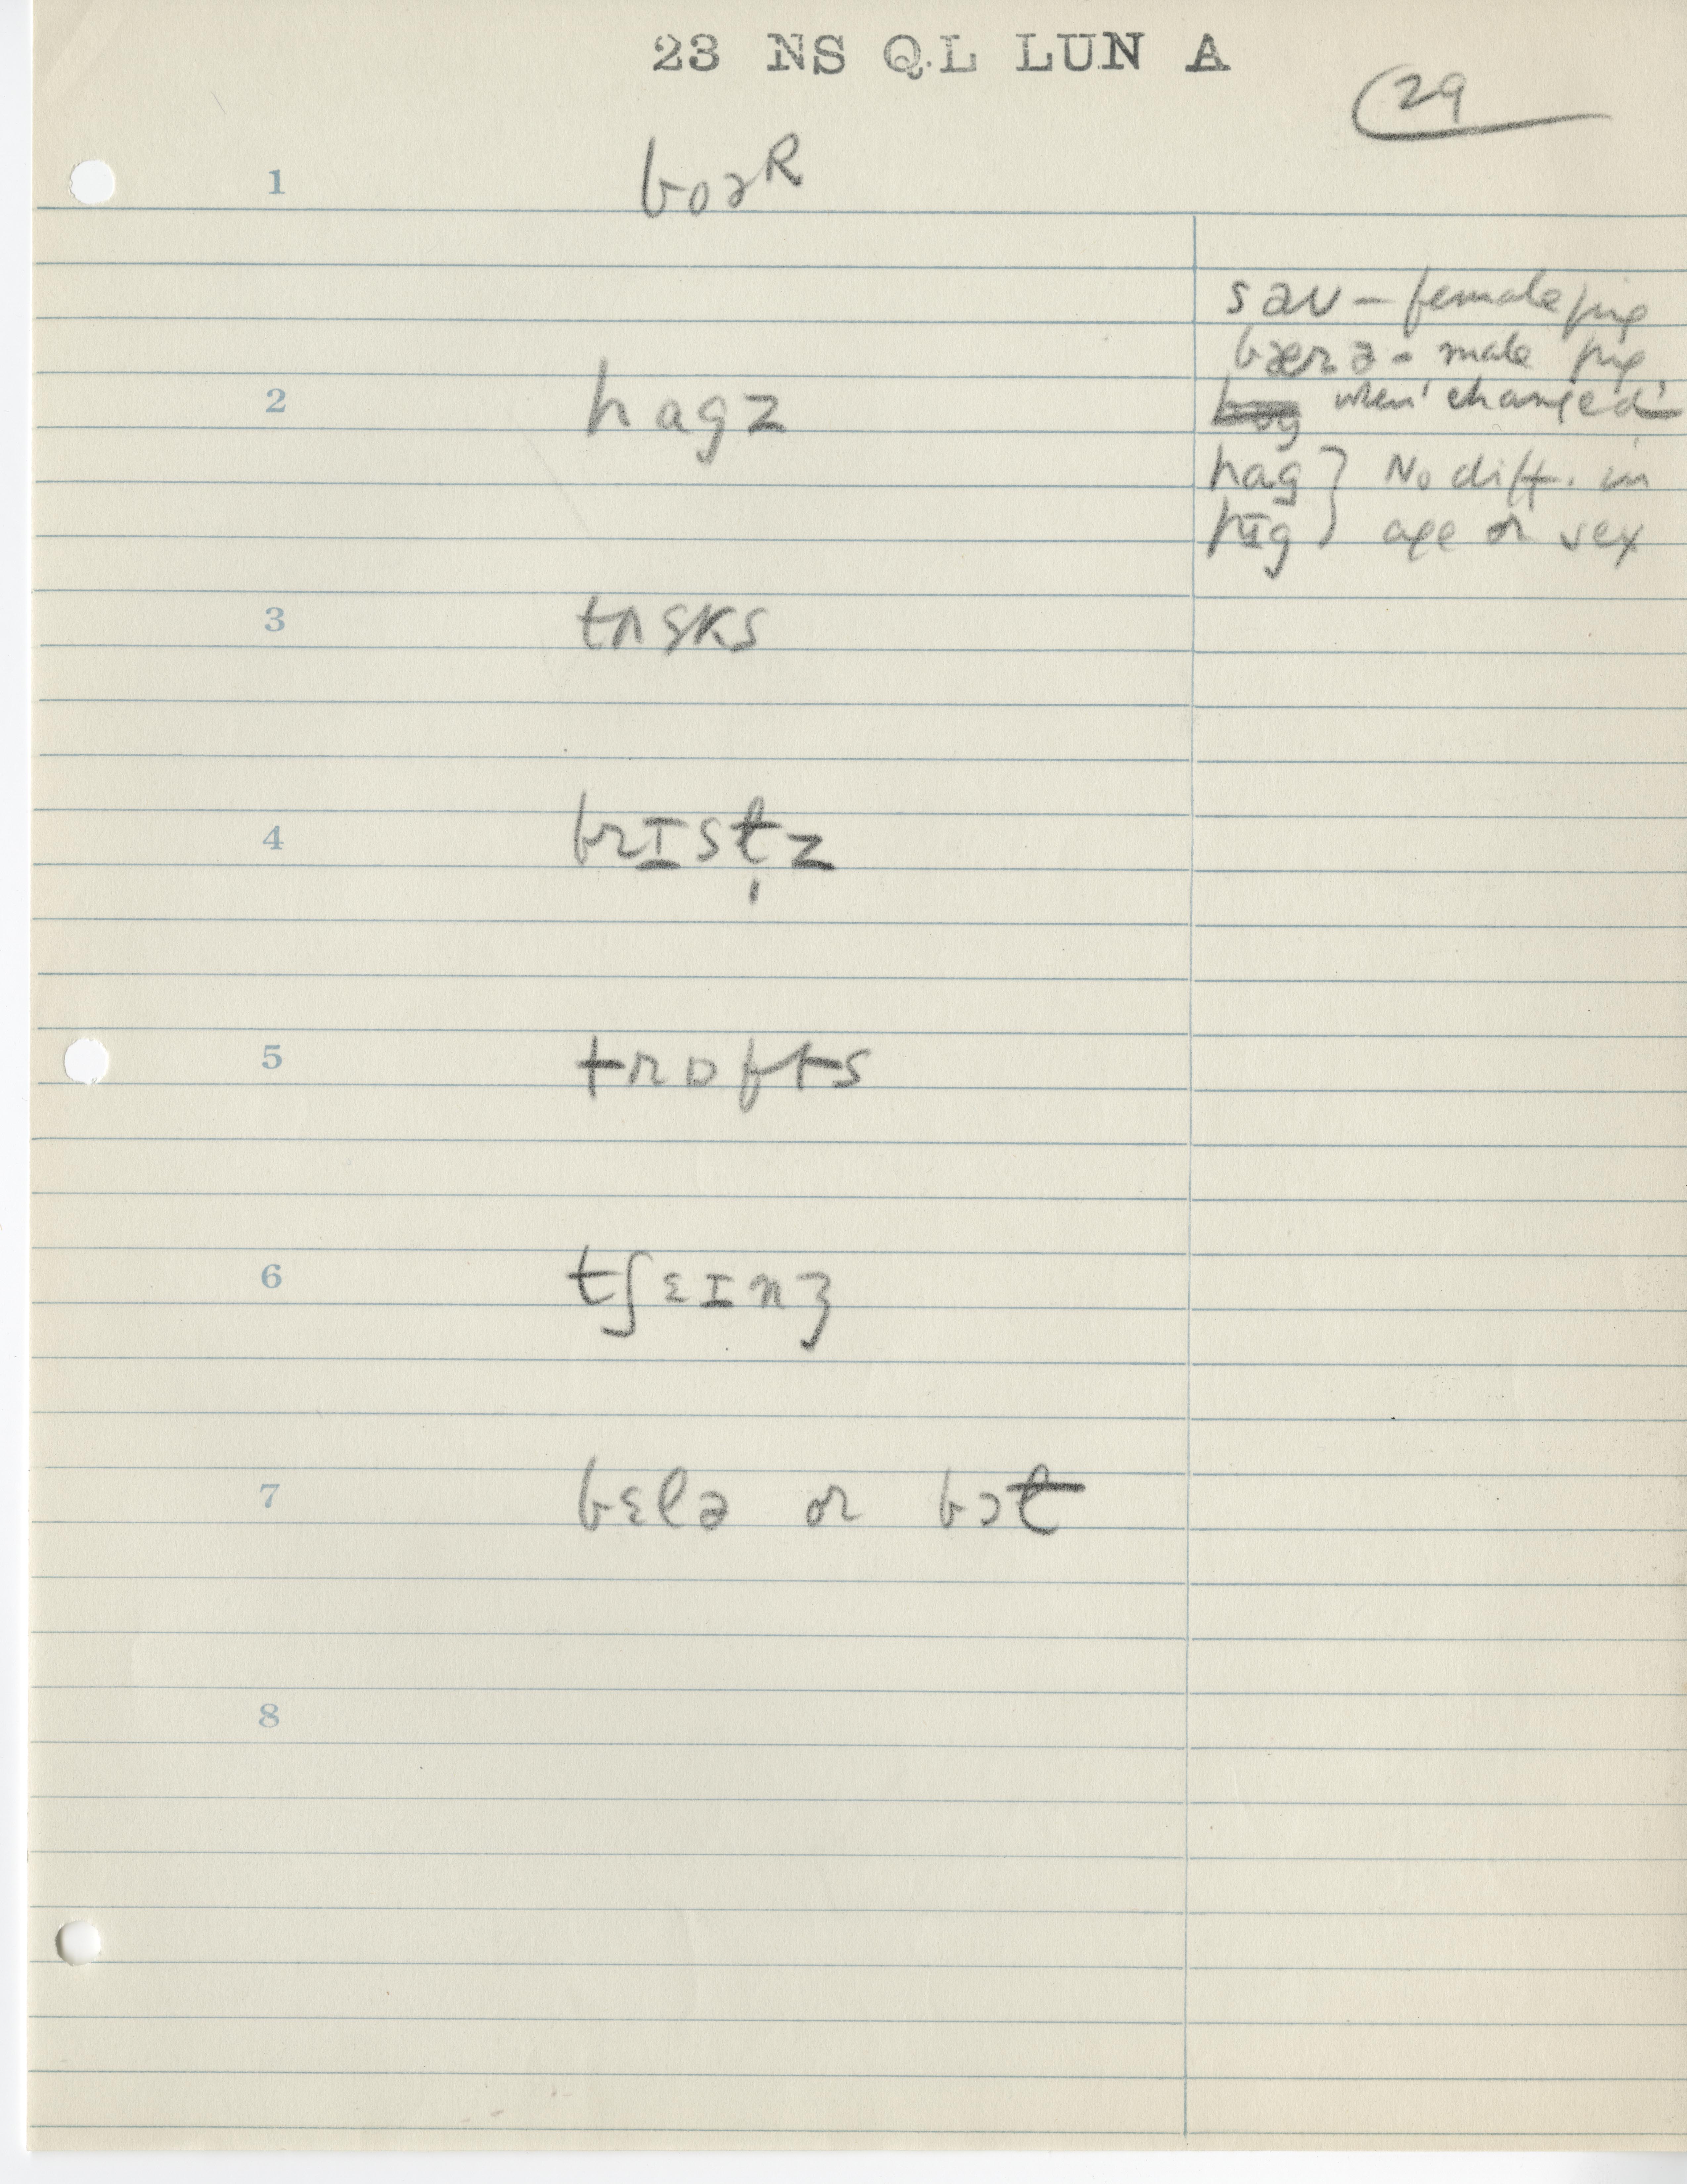 23 NS QL LUN A
29
1 boəᴿ
saʊ – female pig
bærə - male pig
2 hagz when 'changed'
hag } No diff. in
pɪg } age or sex
3 tʌsks
4 brɪstl̩z
5 trɒfts
6 tʃɛɪnʒ
7 bɛlə or bɔt
8